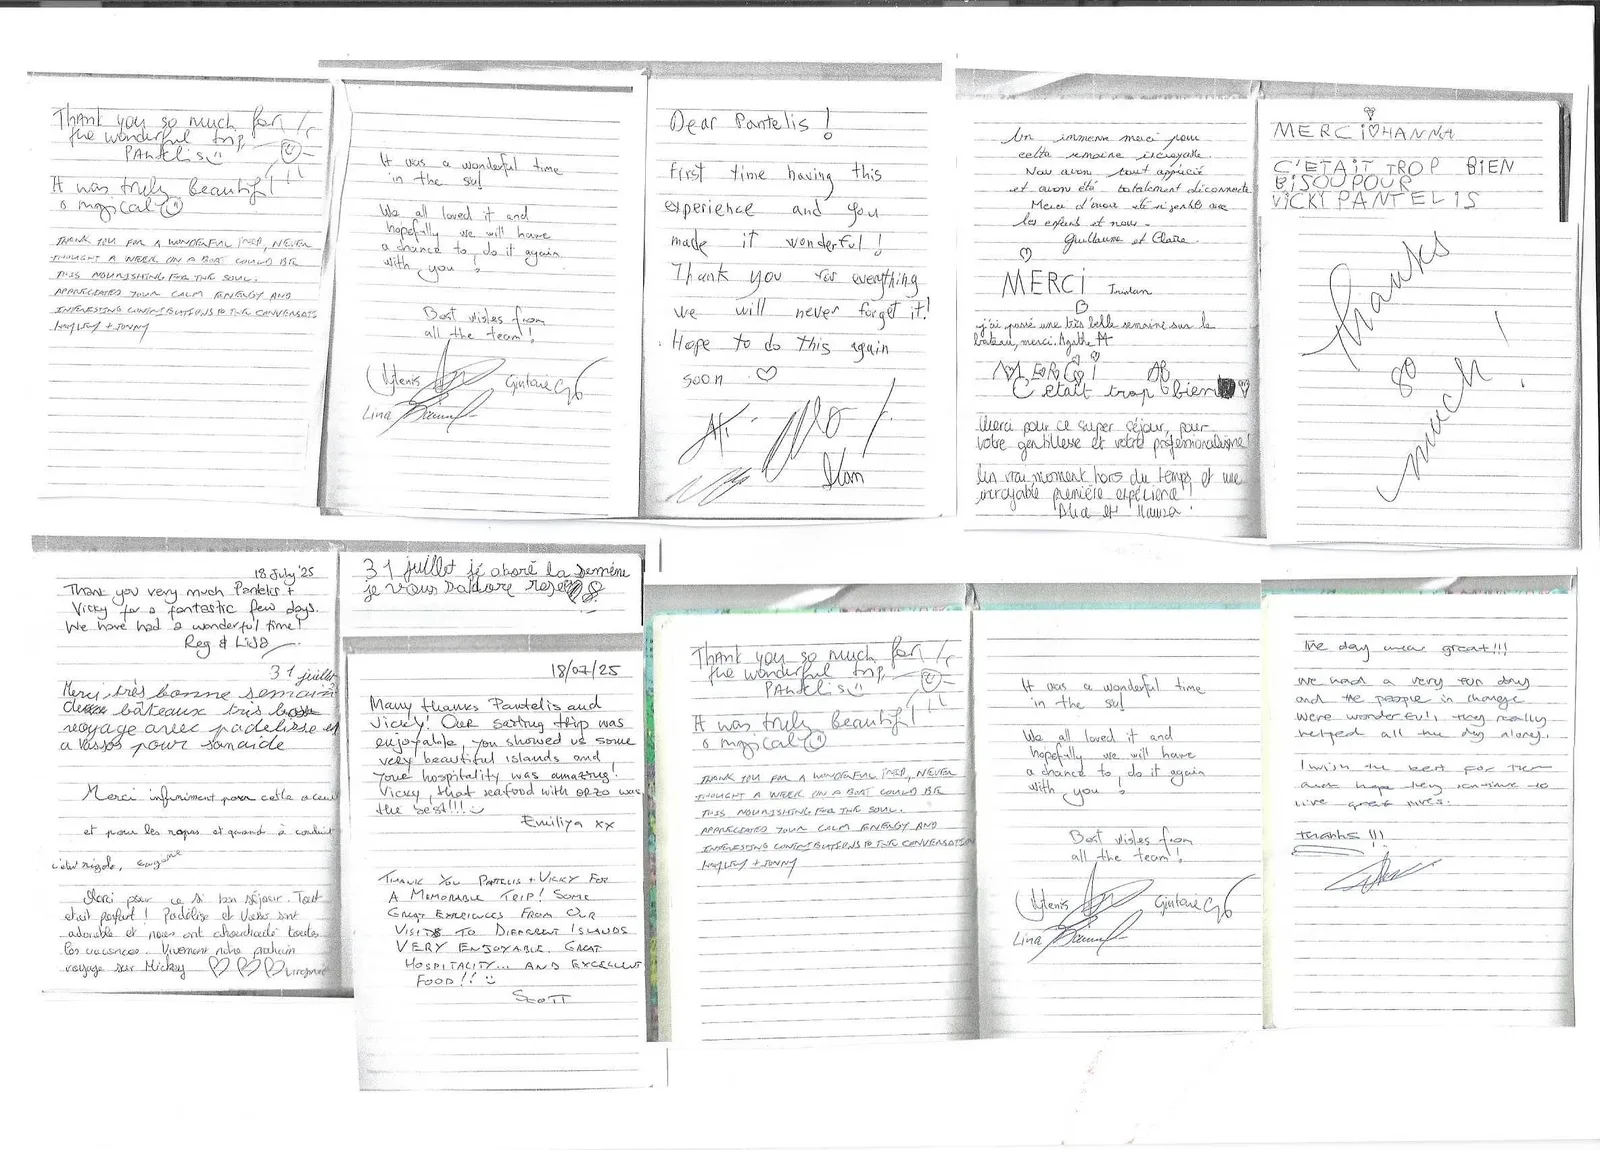 Thank you so much for
the wonderful trip,
PAntelis
It was truly beautiful
& magical
THANK YOU FOR A WONDERFUL TRIP, NEVER
THOUGHT A WEEK ON A BOAT COULD BE
THIS NOURISHING FOR THE SOUL.
APPRECIATED YOUR CALM ENERGY AND
INTERESTING CONTRIBUTIONS TO THE CONVERSATI
HAYLEY + JONNY
It was a wonderful time
in the
We all loved it and
hopefully we will have
a chance to do it again
with you
Best wishes from
all the team!
Vytenis
Gintarė
Lina
Dear Pantelis!
First time having this
experience and you
made it wonderful!
Thank you for everything
we will never forget it!
Hope to do this again
soon ♡
Ilan
Un immense merci pour
cette semaine incroyable.
Nous avons tout apprécié
et avons été totalement déconnecté
Merci d'avoir été si gentils avec
les enfants et nous.
Guillaume et Claire
MERCi Tristan
j'ai passé une très belle semaine sur le
bateau, merci. Agathe
MERCi
C'etait trop bien ♡
Merci pour ce super séjour, pour
votre gentillesse et votre professionalisme!
Un vrai moment hors du temps et une
incroyable première expérience!
et
MERCi♡HANNA
C'ETAIT TROP BiEN
BiSOU POUR
VICKY PANTELIS
Thanks
so
much!
18 July '25
Thank you very much Pantelis +
Vicky for a fantastic few days.
We have had a wonderful time!
Reg & Lisa
31 juillet
Merci très bonne semaine
bâteaux très
voyage avec padelisse et
a vassos pour sonaide
Merci infiniment pour cette
et pour les repas et quand à conduit
c'etait rigolo,
Merci pour ce si bon séjour. Tout
etait parfait! Padélise et Vasso sont
adorable et nous ont chouchouté toutes
les vacances. Vivement notre prochain
voyage sur Mickey ♡♡♡
31 juillet jé adoré la semène
je vous sadore
18/07/25
Many thanks Pantelis and
Vicky! Our sailing trip was
enjoyable, you showed us some
very beautiful islands and
your hospitality was amazing!
Vicky, that seafood with orzo was
the best!!!
Emiliya xx
THANK YOU PANTELIS + VICKY FOR
A MEMORABLE TRIP! SOME
GREAT EXPERIENCES FROM OUR
VISITS TO DIFFERENT ISLANDS
VERY ENJOYABLE. GREAT
HOSPITALITY... AND EXCELLENT
FOOD!!
SCOTT
Thank you so much for
the wonderful trip,
PAntelis
It was truly beautiful
& magical
THANK YOU FOR A WONDERFUL TRIP, NEVER
THOUGHT A WEEK ON A BOAT COULD BE
THIS NOURISHING FOR THE SOUL.
APPRECIATED YOUR CALM ENERGY AND
INTERESTING CONTRIBUTIONS TO THE CONVERSATION
HAYLEY + JONNY
It was a wonderful time
in the
We all loved it and
hopefully we will have
a chance to do it again
with you
Best wishes from
all the team!
Vytenis
Gintarė
Lina
The day was great!!!
We had a very fun day
and the people in charge
were wonderful, they really
helped all the day along.
I wish the best for them
and hope they continue to
live great lives.
Thanks!!!